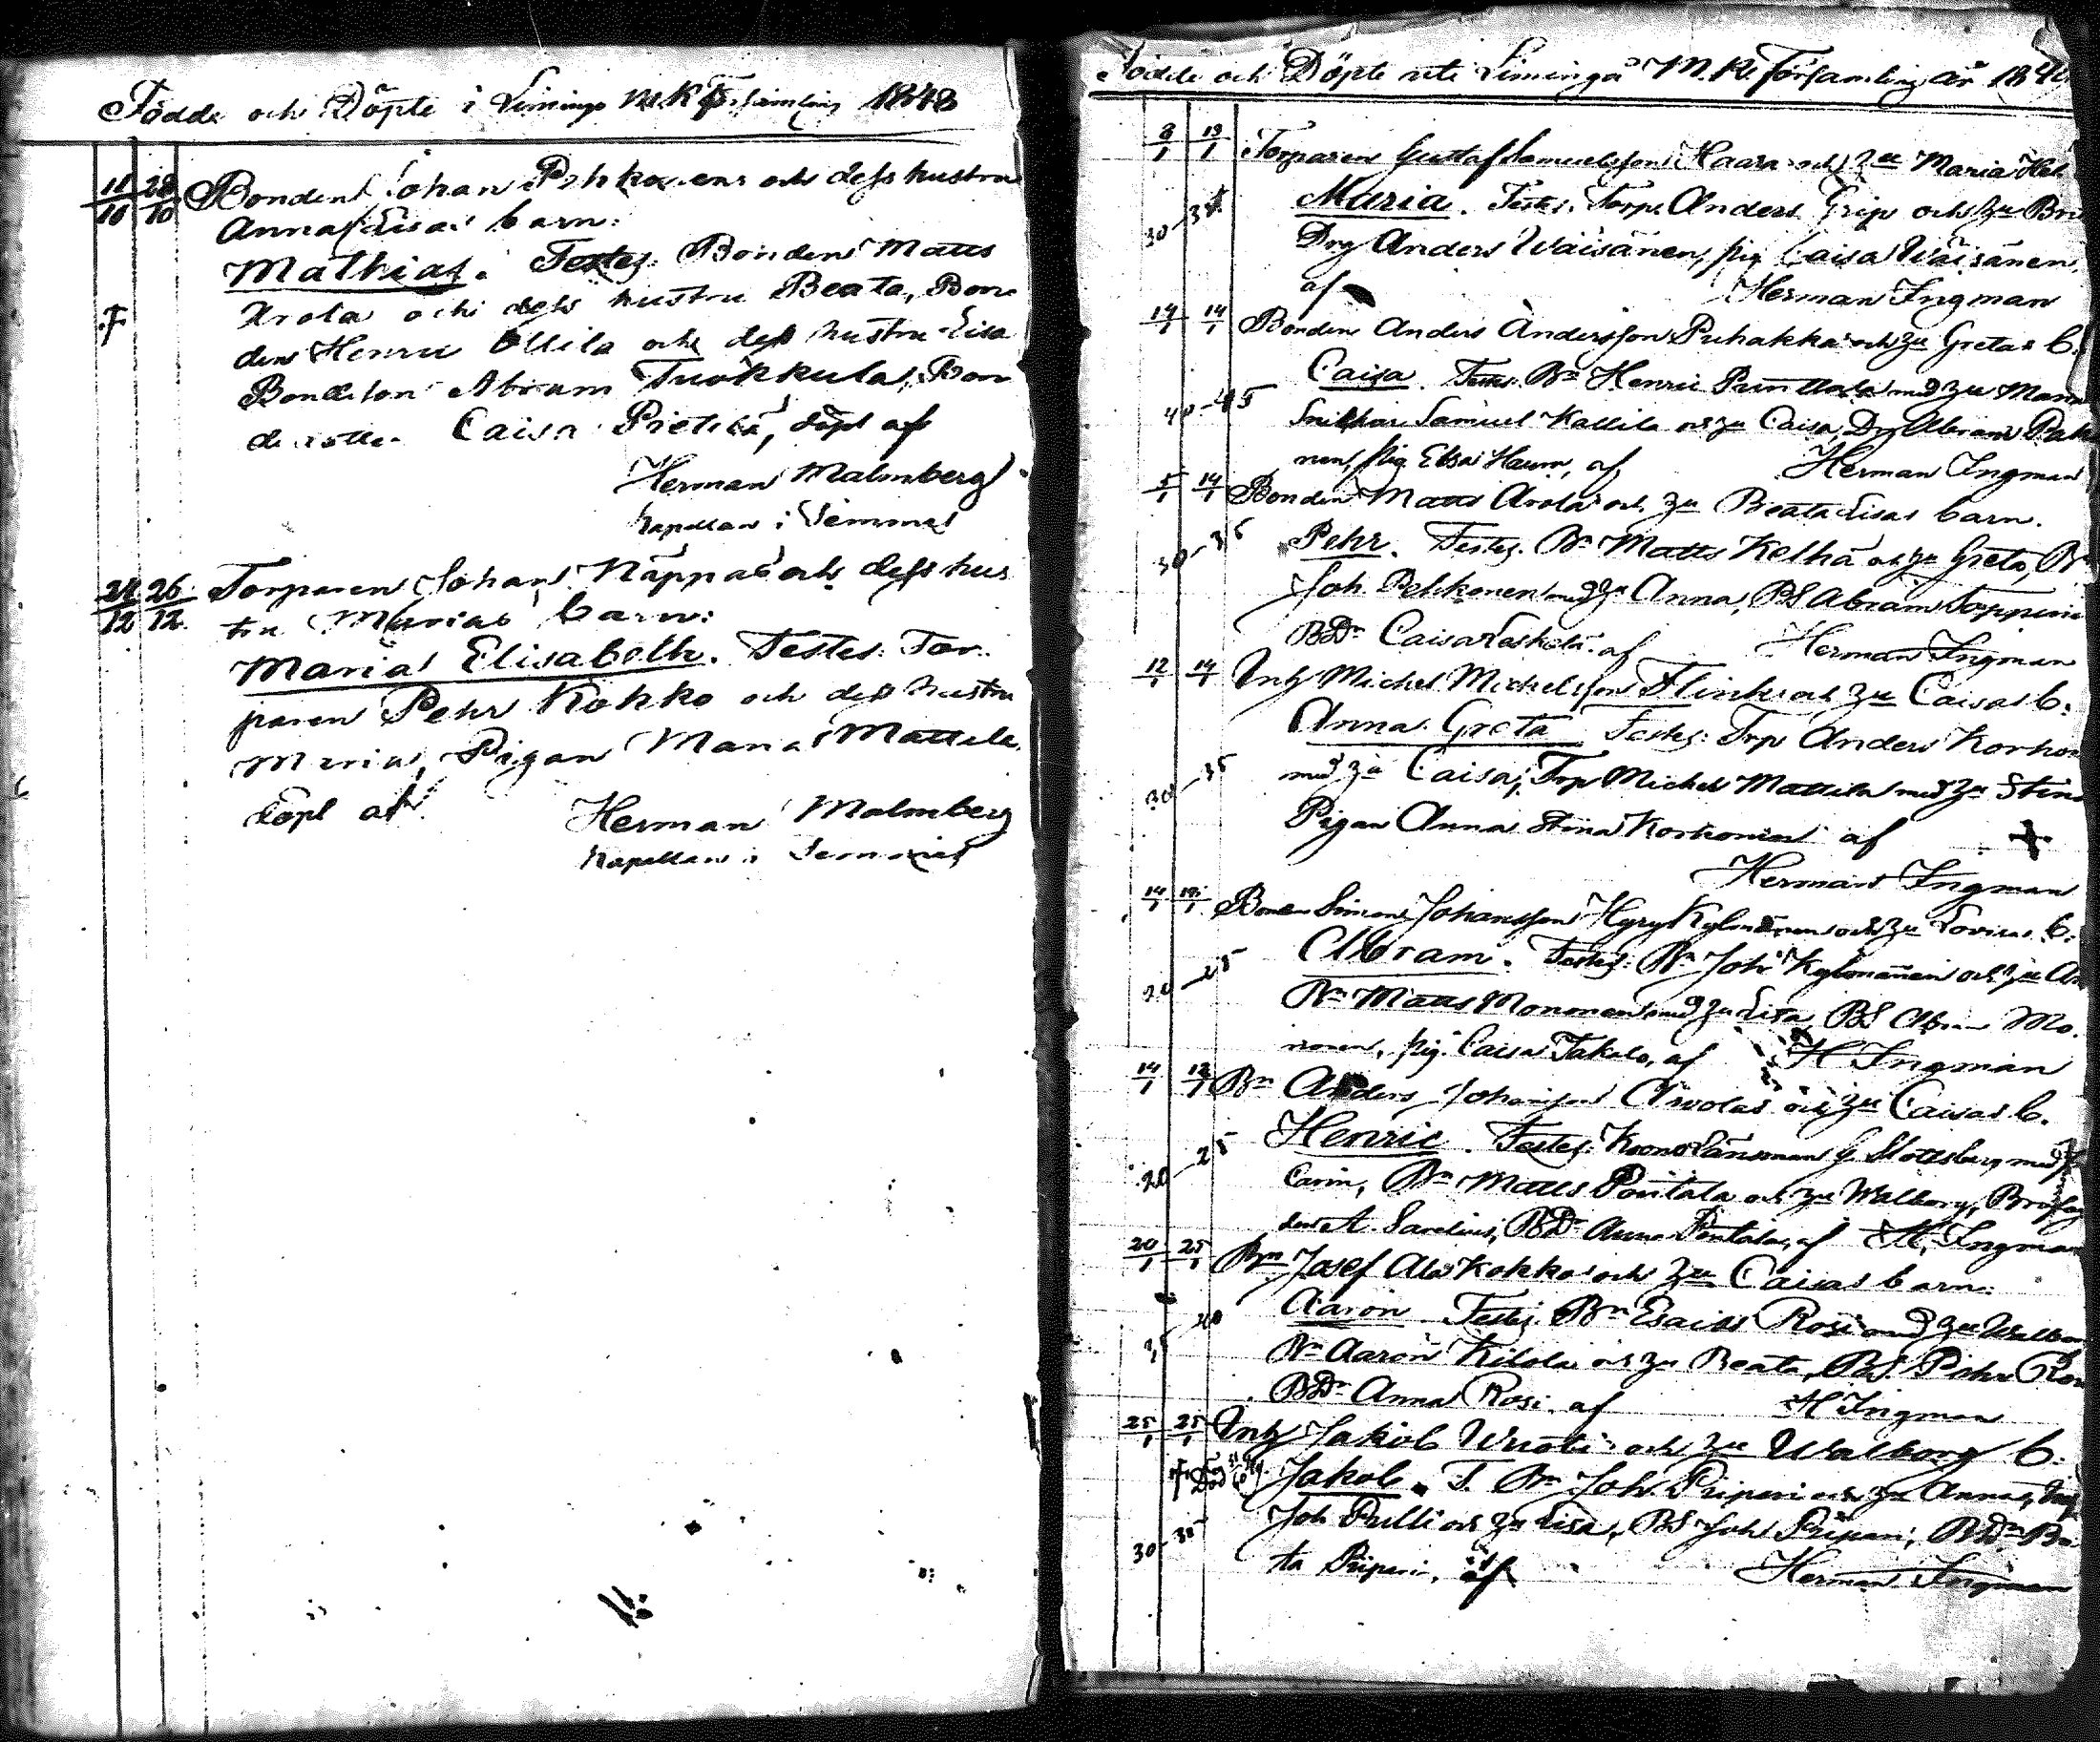 Födde och Döpte i Limingo M.K. Församling 1848
11/10 28/10 Bonden Johan Pehkonens och dess hustru
Anna Lisas barn:
Mathias. Testes: Bonden Matts
Arola och dess hustru Beata, Bon
den Henric Ollila och dess hustru Lisa
Bondeson Abram Tuokkula, Bon
dedotter Caisa Pietilä, döpt af
Herman Malmberg
Kapellan i Temmes
24/12 26/12 Torparen Johan Näppäs och dess hus
tru Marias barn:
Maria Elisabeth. Testes: Tor
paren Pehr Kokko och dess hustru
Maria, Pigan Maria Mattila
döpt af
Herman Malmberg
Kapellan i Temmes
Födde och Döpte uti Limingå M.K. Församling år 184
8/1 13/1 Torparen Gustaf Samuelsson Haara och Hu Maria Hel
Maria. Testes. Torp. Anders Grip och Hu Bri
30-35 Drg Anders Wäisänen, pig Caisa Wäisänen,
af Herman Ingman
14/1 14/1 Bonden Anders Andersson Puhakka och Hu Gretas b.
Caisa. Testes. Bn Henric Punttala med Hu Maria
40-45 Samuel Kallila och Hu Caisa, Drg Abram Pak
nen, pig Elsa af Herman Ingman
5/1 14/1 Bonden Matts Arola och Hu Beata Lisas barn.
30-35 Pehr. Testes. Bn Matts Kelhä och Hu Greta, Bn
Joh. Pehkonen med Hu Anna, BS Abram Toppine
BDr Caisa Leskelä. af Herman Ingman
12/1 14/1 Inh Michel Michelsson Flink och Hu Caisas b:
Anna Greta Testes: Trp Anders Korho
30-35 med Hu Caisa, Trp Michel Mattila med Hu Stina
Pigan Anna Stina Korhonen af
Herman Ingman
14/1 Simon Johansson Hyry Kylmänen och Hu Lovisas b:
Abram. Testes: Bn Joh Kylmänen och Hu An
20-25 Bn Matts Mononen med Hu Lisa, BS Abram Mo
nonen, pig. Caisa Takalo, af H Ingman
14/1 Bn Anders Johansson Arvolas och Hu Caisas b.
Henric. Testes: Kronolänsman G Slottsberg med Hu
20-25 Carin, Bn Matts Pentala och Hu Walborg,
A. Sarelius, BDr Anna Pentala, af H. Ingman
20/1 25/1 Bn Josef Ala Kokko och Hu Caisas barn:
Aaron Testes. Bn Esaias Rosi med Hu Walborg
35-40 Bn Aaron Kilola och Hu Beata, BS. Pehr Ro
BDr Anna Rosi, af H Ingman
25/1 25/1 Inh Jakob Wuoti och Hu Walborg b:
Jakob. T. Bn Joh. Piiperi och Hu Anna, Inh
30-35 Joh Pulli och Hu Lisa, BS Joh Piiperi, BDr Bri
ta Piiperi, af Herman Ingman